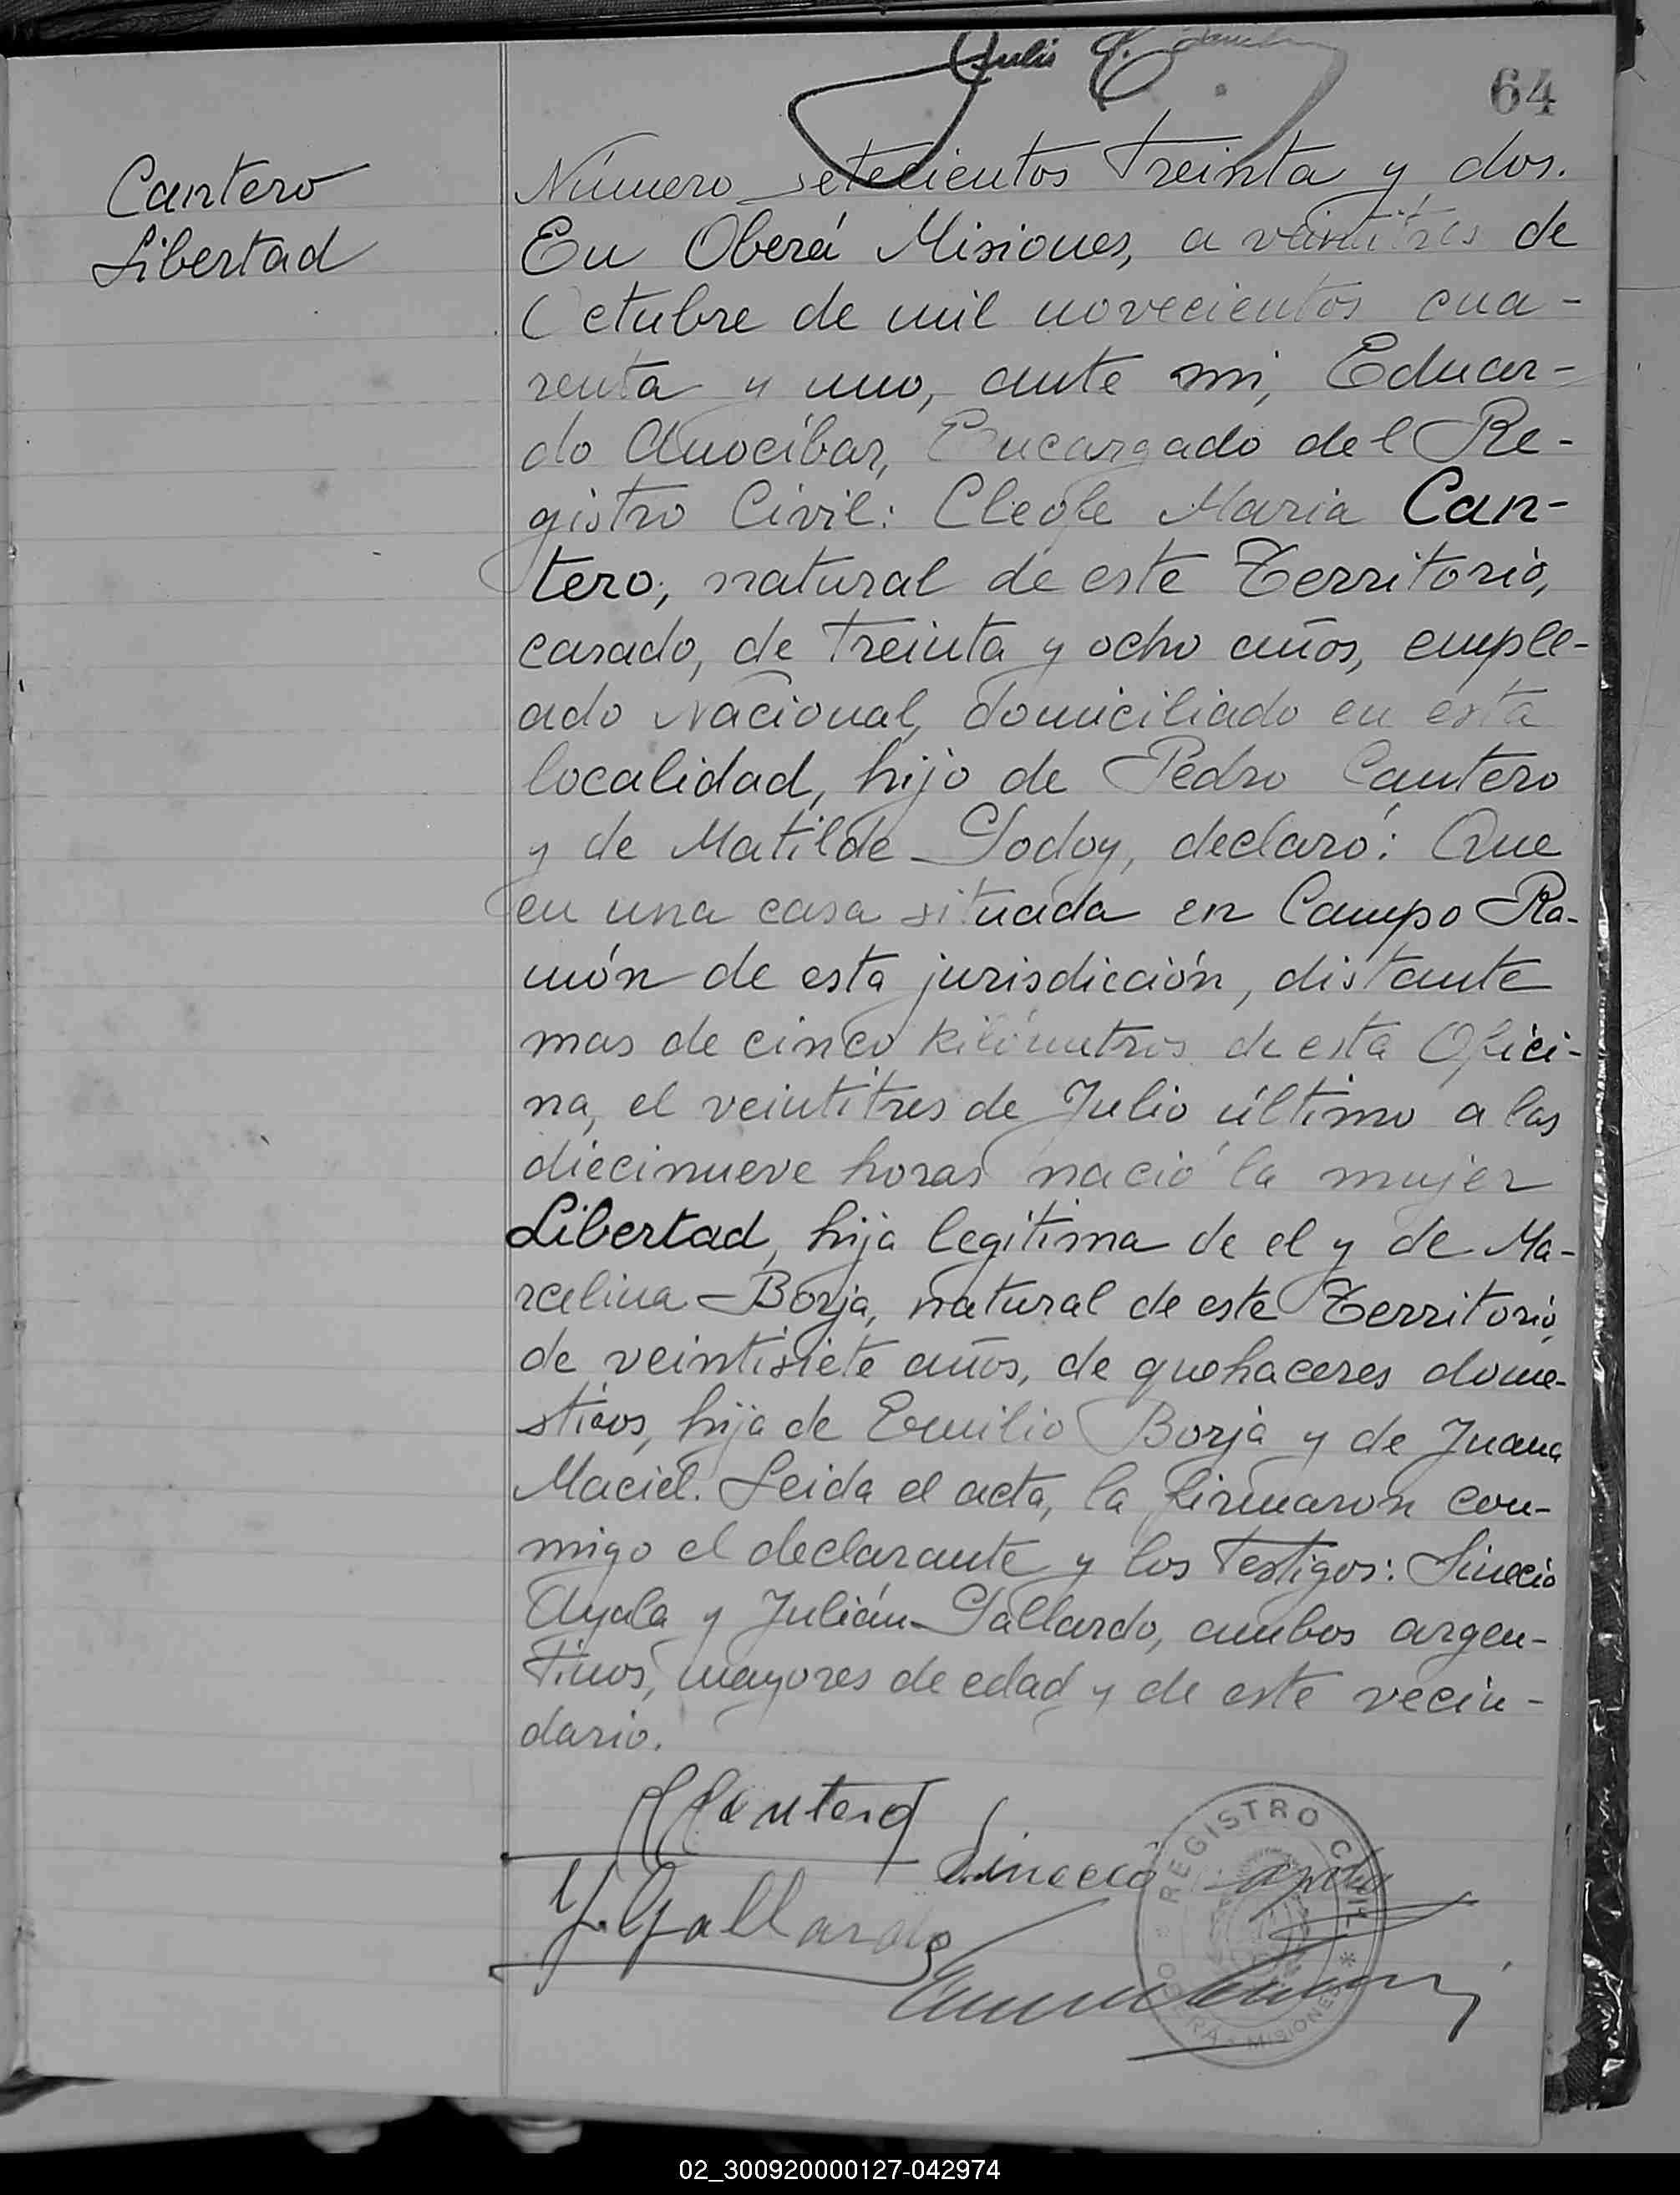 64
Cantero
Libertad
Número setecientos treinta y dos.
En Oberá Misiones, a veintitres de
Octubre de mil novecientos cua-
renta y uno, ante mi, Eduar-
do Anocíbar, Encargado del Re-
gistro Civil: Cleofe Maria Can-
tero, natural de este Territorio,
casado, de treinta y ocho años, emple-
ado Nacional, domiciliado en esta
localidad, hijo de Pedro Cantero
y de Matilde Godoy, declaró: Que
en una casa situada en Campo Ra-
món de esta jurisdicción, distante
mas de cinco kilómetros de esta Ofici-
na, el veintitres de Julio último a las
diecinueve horas nació la mujer
Libertad, hija legítima de el y de Ma-
rcelina Borja, natural de este Territorio,
de veintisiete años, de quehaceres dome-
sticos, hija de Emilio Borja y de Juana
Maciel. Leida el acta, la firmaron con-
migo el declarante y los testigos: Sinecio
Ayala y Julián Gallardo, ambos argen-
tinos, mayores de edad y de este vecin-
dario.
Cantero
Sinecio Ayala
J. Gallardo
REGISTRO CIVIL
MISIONES
02_300920000127-042974